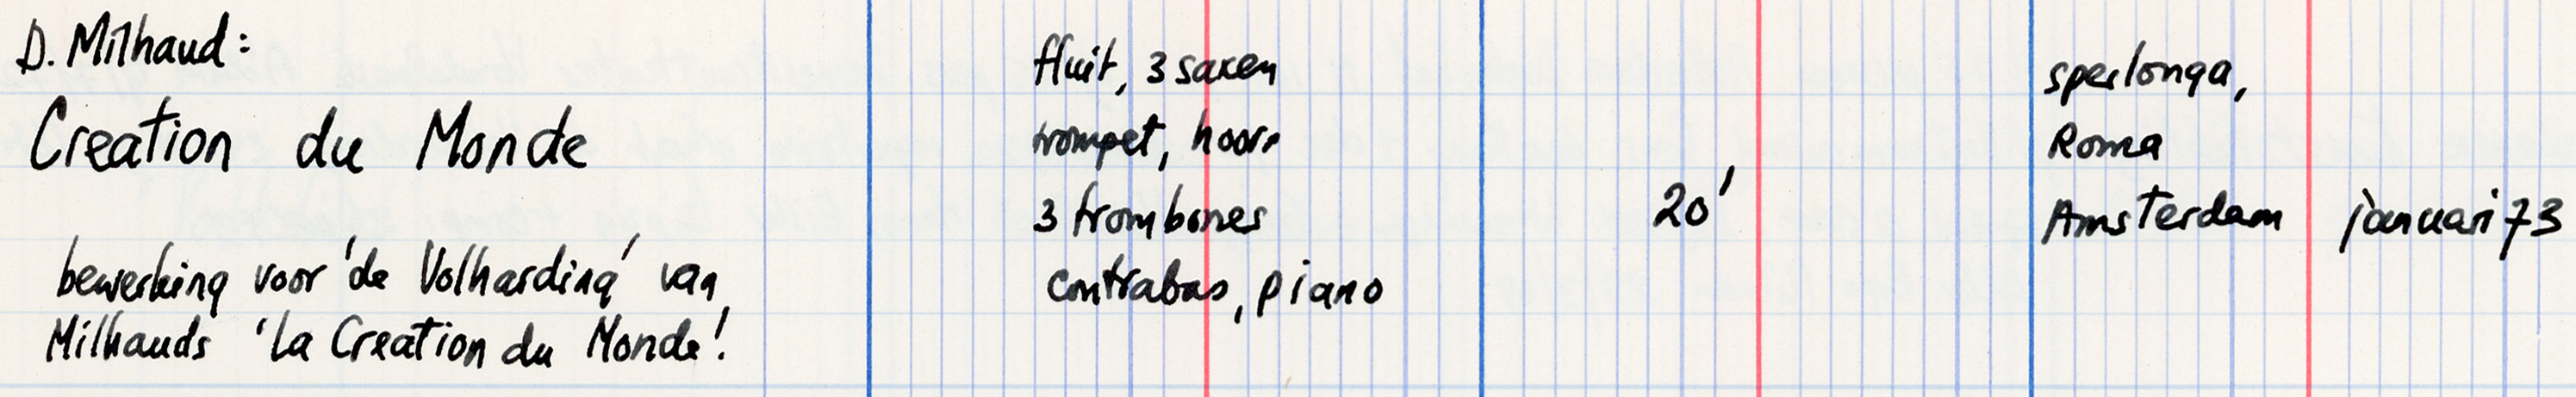 D. Milhaud:
Creation du Monde
bewerking voor 'de Volharding' van
Milhauds 'La Creation du Monde'.
fluit, 3 saxen
trompet, hoorn
3 trombones
contrabas, piano
20'
sperlonga,
Roma
Amsterdam januari 73